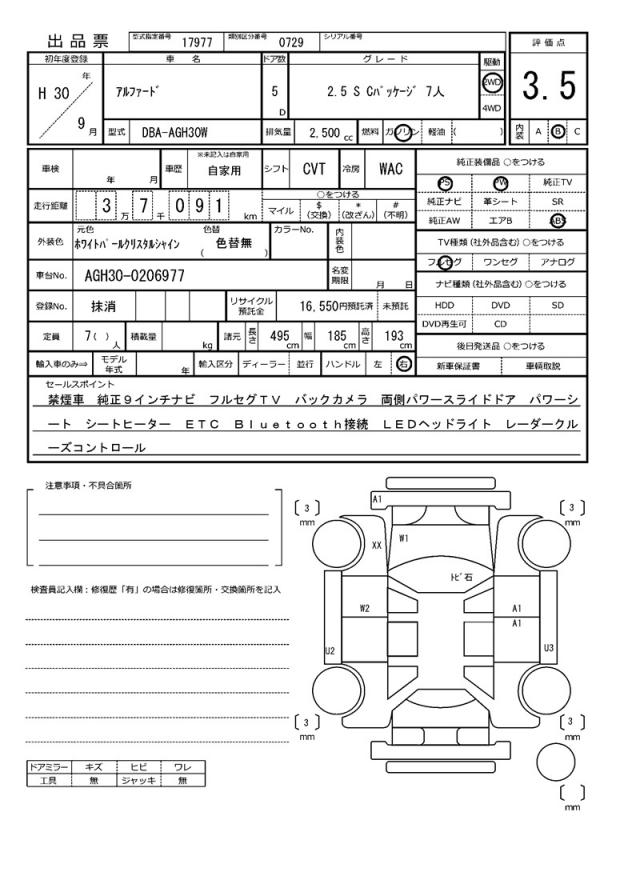 出品票 型式指定番号 17977 類別区分番号 0729 シリアル番号
評価点
3.5
初年度登録 車名 ドア数 グレード 駆動
H 30 年 9 月
アルファード 5 D 2.5 S Cパッケージ 7人 2WD 4WD
型式 DBA-AGH30W 排気量 2,500 cc 燃料 ガソリン 軽油 ( )
内装 A B C
車検 年 月 車歴 ※未記入は自家用 自家用 シフト CVT 冷房 WAC
走行距離 3 万 7 千 0 9 1 km
○をつける
マイル $(交換) *(改ざん) #(不明)
外装色 元色 ホワイトパールクリスタルシャイン 色替 ( 色替無 ) カラーNo. 内装色
車台No. AGH30-0206977 名変期限 月 日
登録No. 抹消 リサイクル預託金 16,550円預託済 未預託
定員 7( )人 積載量 kg 諸元 長さ 495cm 幅 185cm 高さ 193cm
輸入車のみ⇒ モデル年式 年 輸入区分 ディーラー 並行 ハンドル 左 右
純正装備品 ○をつける
PS PW 純正TV
純正ナビ 革シート SR
純正AW エアB ABS
TV種類(社外品含む)○をつける
フルセグ ワンセグ アナログ
ナビ種類(社外品含む)○をつける
HDD DVD SD
DVD再生可 CD
後日発送品 ○をつける
新車保証書 車輌取説
セールスポイント
禁煙車 純正9インチナビ フルセグTV バックカメラ 両側パワースライドドア パワーシ
ート シートヒーター ETC Bluetooth接続 LEDヘッドライト レーダークル
ーズコントロール
注意事項・不具合箇所
検査員記入欄:修復歴「有」の場合は修復箇所・交換箇所を記入
ドアミラー キズ ヒビ ワレ
工具 無 ジャッキ 無
A1
〔 3 〕mm
〔 3 〕mm
XX W1
トビ石
W2 A1
A1
U2 U3
〔 3 〕mm
〔 3 〕mm
〔 〕mm